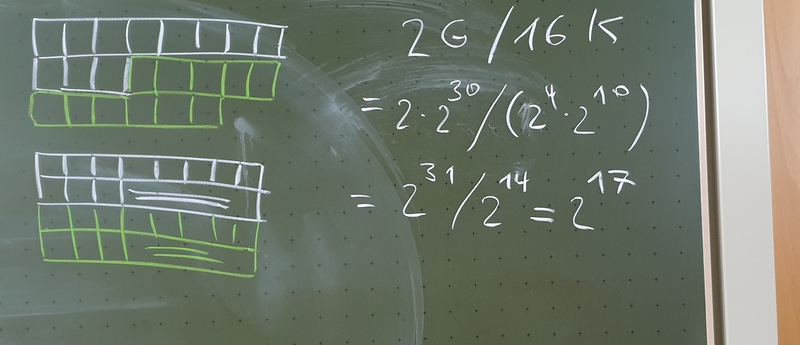 2 G / 16 K
= 2 · 2^30 / (2^4 · 2^10)
= 2^31 / 2^14 = 2^17